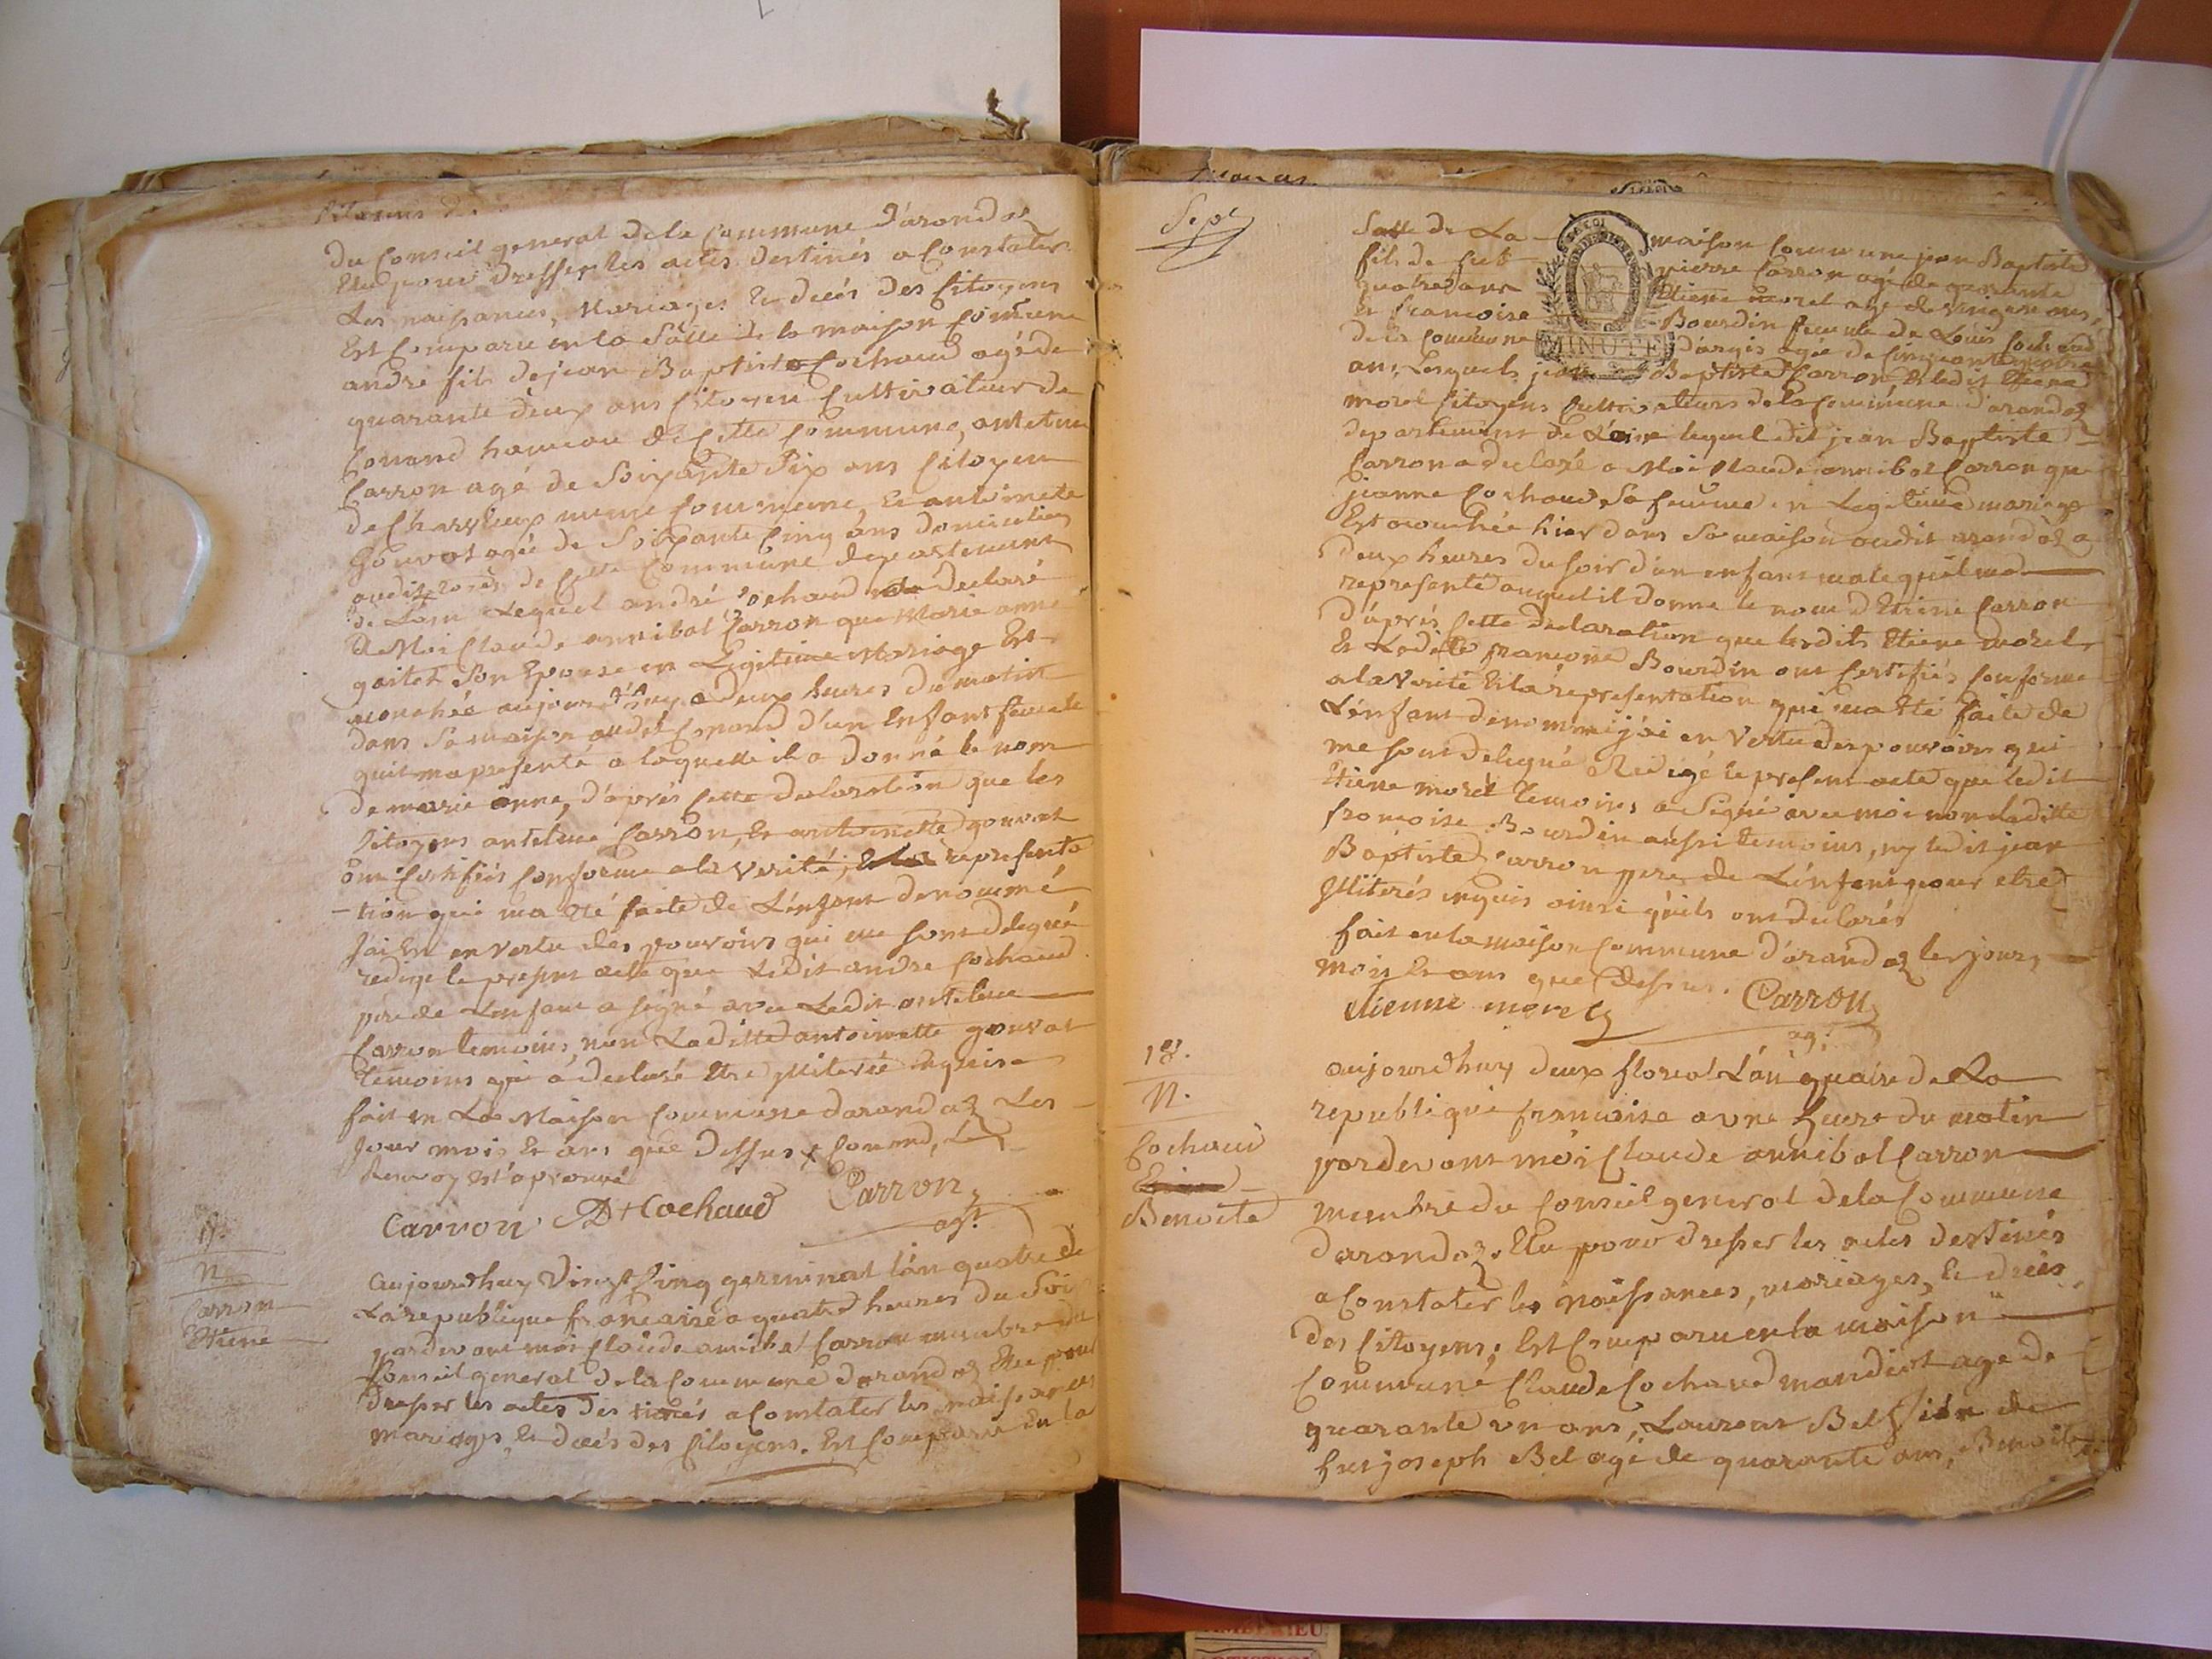 du Conseil general dela Commune d'arandaz
Elu pour dresser les actes destinés a Constater
Les naissances, Mariages Et decés des Citoyens
Est Comparu en la Salle de la maison Comune
andre fils de jean Baptiste Cochaud agé de
quarante deux ans Citoyen Cultivateur de
Conand hameau de Cette Commune, antelme
Carron agé de Soixante Six ans Citoyen
de Charvieux meme Commune, Et antoinete
Gouvat agée de Soixante Cinq ans domiciliés
de Cette Commune departement
de Lain Lequel andré Cochaud declaré
A Moi Claude annibal Carron que Marie anne
gaitet Son Epouse en Legitime Mariage Est
acouchée aujourd'huy a deux heures du matin
dans Sa maison audit Conand d'un Enfant femelle
quil ma presenté a laquelle il a donné le nom
de marie anne, d'aprés Cette declaration que les
Citoyens antelme Carron, Et antoinette gouvat
ont Certifiés Conforme a la Verité, representa
-tion qui ma Eté faite de L'enfant denommé
Jai en Vertu des pouvoirs qui me sont delegué
redigé le present acte que Ledit andre Cochaud
pere de Lenfant a signé avec Ledit antelme
Carron temoins, non Laditte antoinette gouvat
temoins qui a declaré Etre illiterée Enquise
fait en La Maison Commune darandaz Les
Jour mois Et ans que dessus Conand, Le
Renvoy est aprouvé
Carron A Cochaud Carron
agt
17.
N.
Carron
Etiene
aujourdhuy Vingt Cinq germinal l'an quatre de
La republique francaise a quatre heures du Soir
pardevant moi Claude anibal Carron membre du
Conseil general de la Commune darandaz Elu pour
dresser les actes destinés a Constater les naissances
mariages, Et decés des Citoyens. Est Comparu en la
Sept
Salle de La maison Commune jean Baptiste
fils de feu pierre Carron agé de quarante
quatre ans Etiene morel agé de Vingt ans,
Et francoise Bourdin femme de Louis Cochaud
de la Commune d'argis agée de Cinquante quatre
ans, Lesquels jean Baptiste Carron, Et ledit Etiene
morel Citoyens Cultivateurs de la Commune d'arandaz
departement de L'ain lequel dit jean Baptiste
Carron a declaré a Moi Claude annibal Carron que
jeanne Cochaud Sa femme en Legitime mariage
Est acouchée hier dans Sa maison audit arandaz a
deux heures du soir d'un enfant male quil ma
representé auquel il donne le nom d'Etiene Carron
d'aprés Cette declaration que lesdits Etiene morel
Et Ladite francoise Bourdin ont Certifiés Conforme
a la Verité Et la representation qui ma Eté faite de
L'enfant denommé j'ai en Vertu des pouvoirs qui
me sont delegué Redigé le present acte que ledit
Etiene morel temoins a Signé avec moi non laditte
francoise Bourdin aussi temoins, ny ledit jean
Baptiste Carron pere de L'enfant pour etre
illiterés enquis ainsi qu'ils ont declarés
fait en la maison Commune d'arandaz les jour,
mois Et ans que dessus.
etienne morel Carron
agt
18.
N.
Cochaud
Benoite
aujourdhuy deux floreal L'an quatre de La
republique francoise a une heure du matin
pardevant moi Claude annibal Carron
membre du Conseil general de la Commune
darandaz. Elu pour dresser les actes destinés
a Constater les naissances, mariages, Et decés
des Citoyens; Est Comparu en la maison
Commune Claude Cochaud mandiat age de
quarante un ans, Laurent Bel fils de
feu joseph Bel agé de quarante ans, Benoite
MINUTE